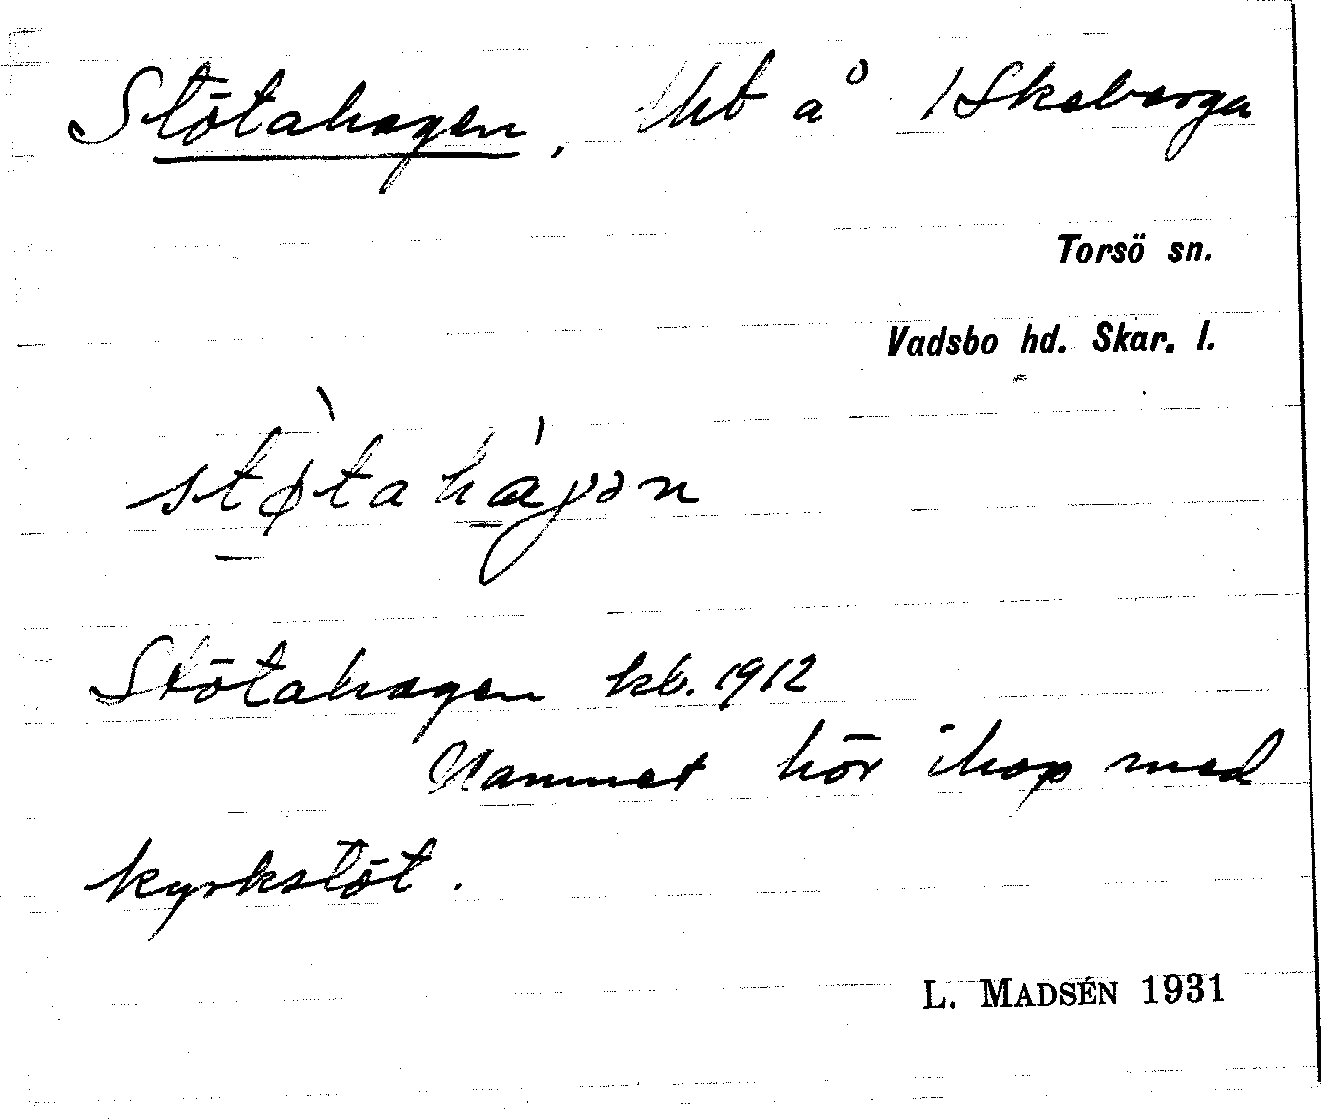 Stötahagen, lht å 1 Skaberga
Torsö sn.
Vadsbo hd. Skar. l.
stø̀tahágən
Stötahagen kb. 1912
Namnet hör ihop med
kyrkstöt.
L. MADSÉN 1931